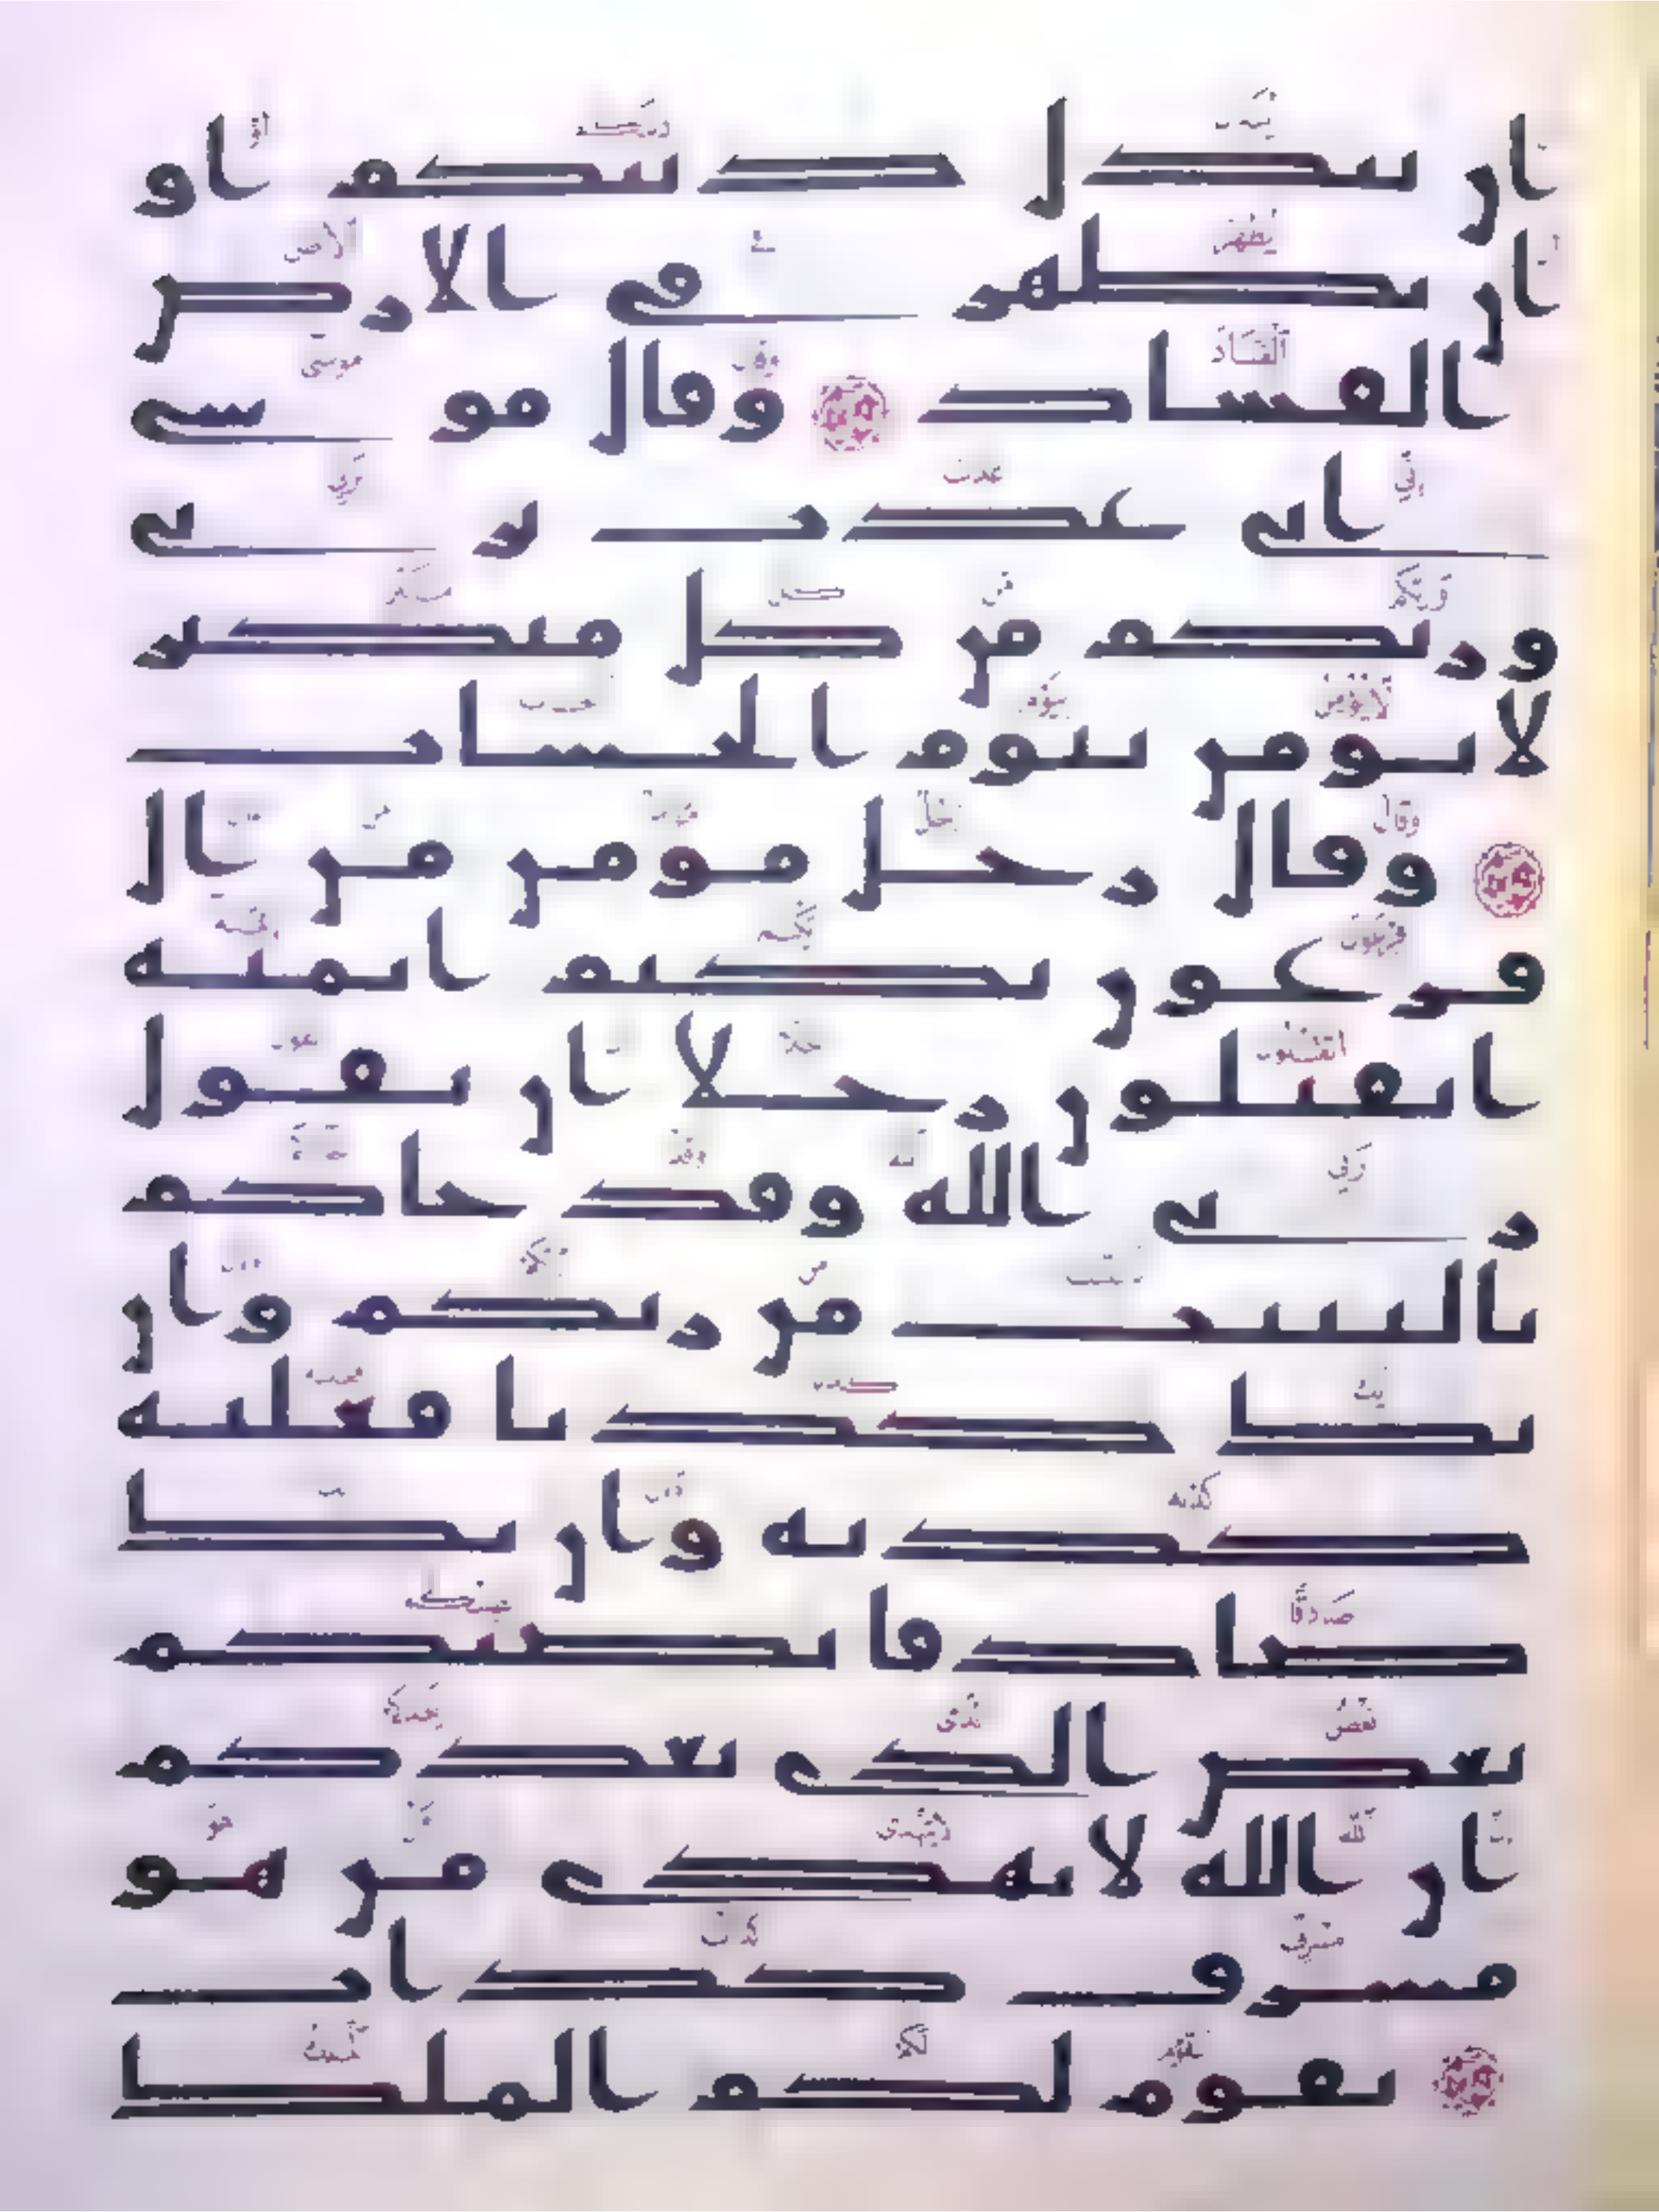 ان يبدل دينكم او
ان يظهر في الارض
الفساد وقال موسى
اني عذت بربي
وربكم من كل متكبر
لا يومن بيوم الحساب
وقال رجل مومن من ال
فرعون يكتم ايمنه
اتقتلون رجلا ان يقول
ربي الله وقد جاكم
بالبينت من ربكم وان
يك كذبا فعليه
كذبه وان يك
صادقا يصبكم
بعض الذي يعدكم
ان الله لا يهدي من هو
مسرف كذاب
يقوم لكم الملك